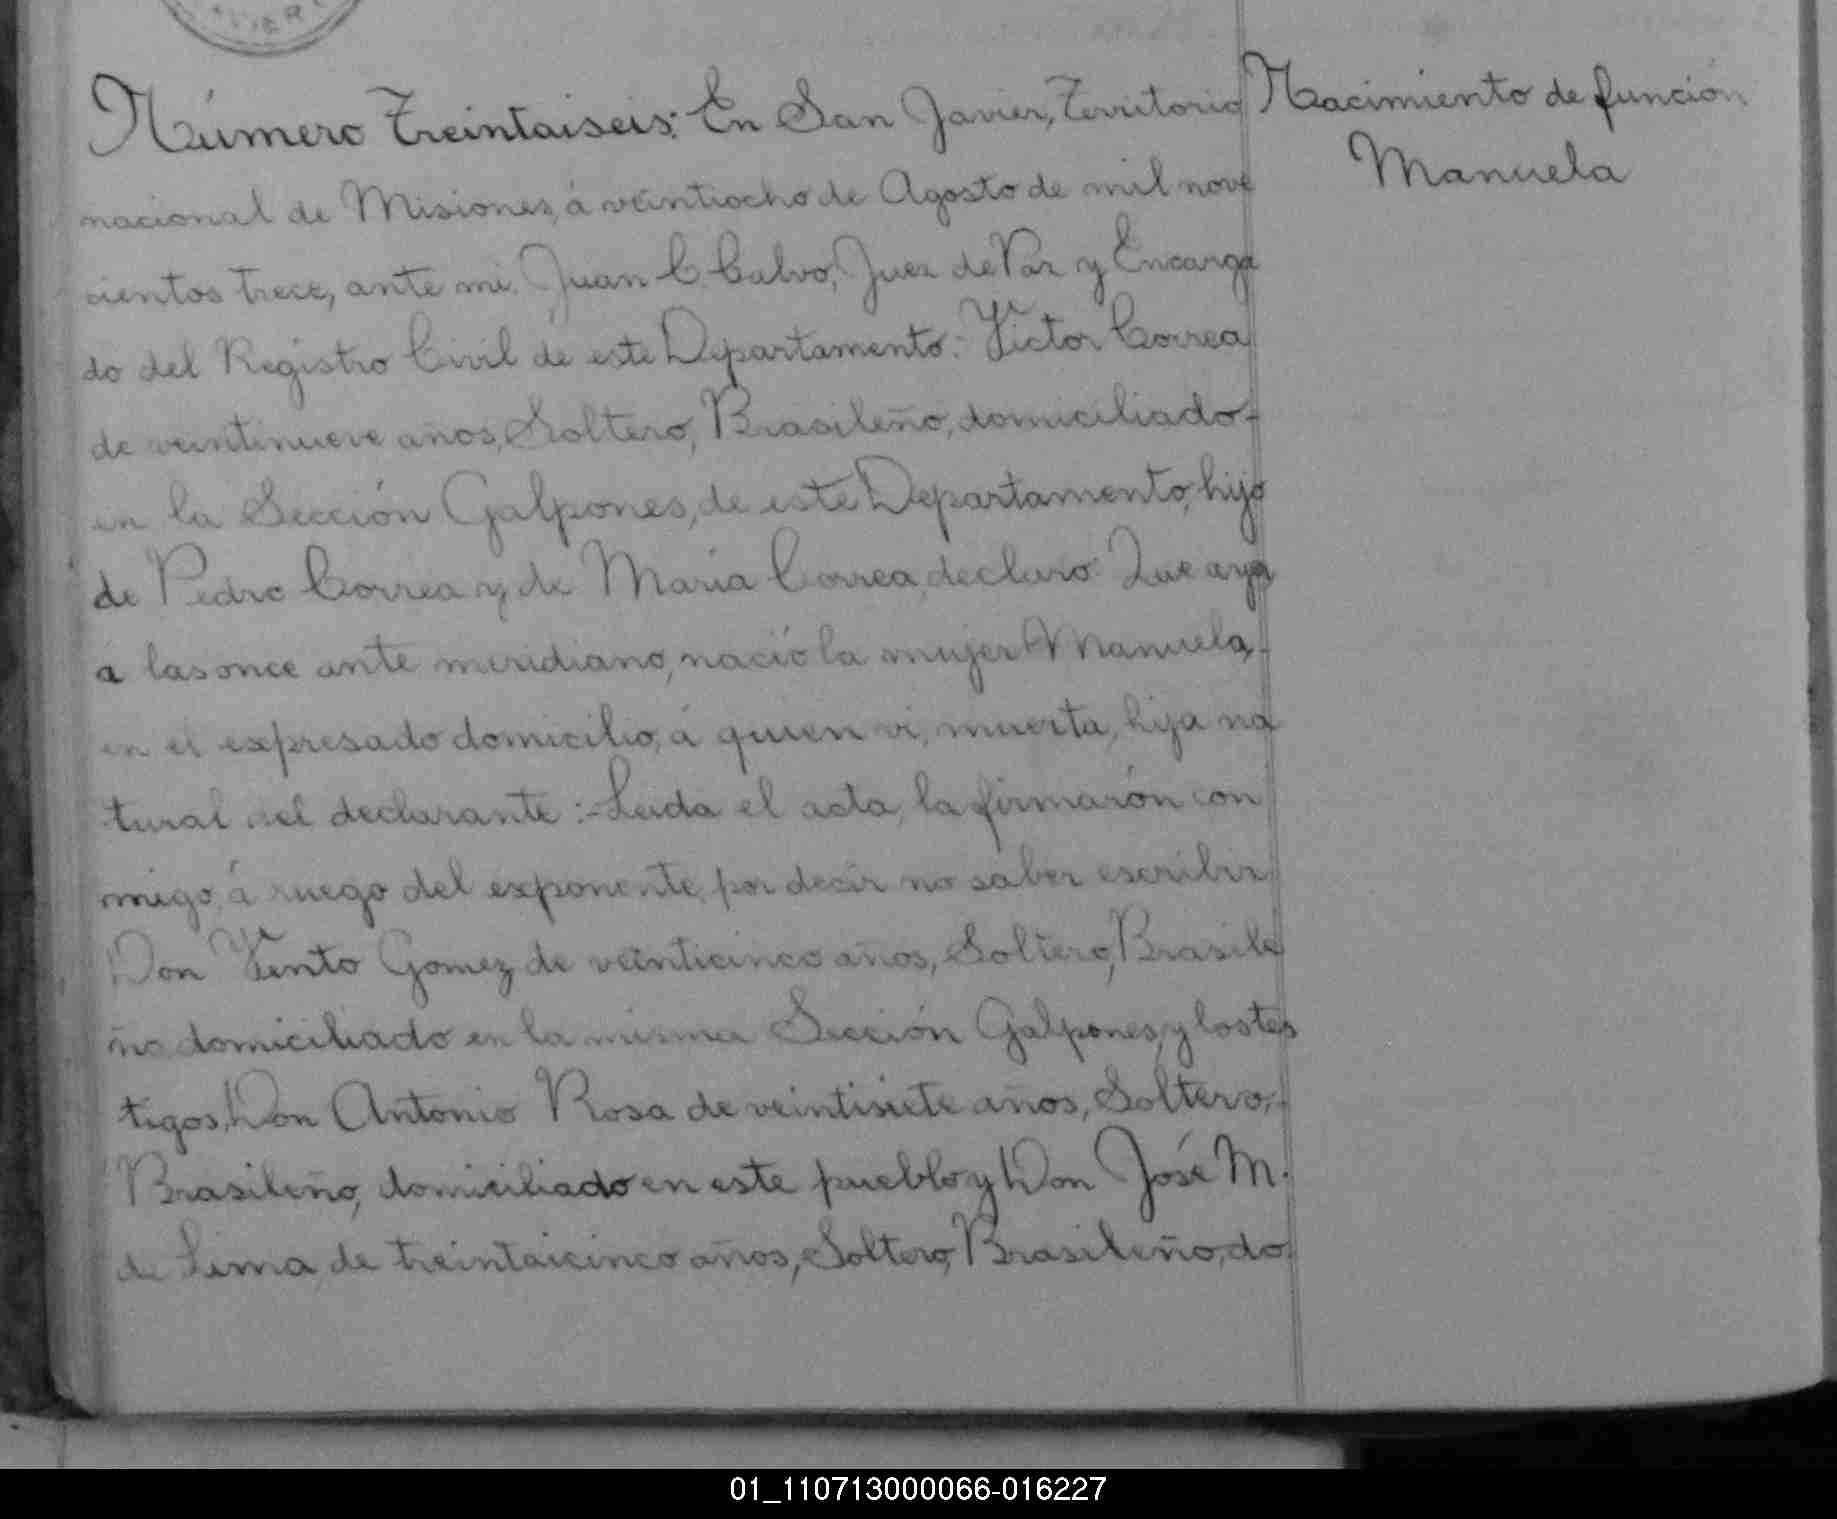 Número Treintaiseis: En San Javier, Territorio
nacional de Misiones, á veintiocho de Agosto de mil nove
cientos trece, ante mi, Juan C. Calvo, Juez de Paz y Encarga
do del Registro Civil de este Departamento: Victor Correa
de veintinueve años, Soltero, Brasileño, domiciliado-
en la Sección Galpones, de este Departamento, hijo
de Pedro Correa y de Maria Correa, declaro: Que aya
a las once ante meridiano, nació la mujer Manuela,-
en el expresado domicilio, á quien vi, muerta, hija na
tural del declarante:- Leida el acta, la firmarón con
migo, á ruego del exponente, por decir no saber escribir
Don Vento Gomez de veinticinco años, Soltero, Brasile
ño domiciliado en la misma Sección Galpones, y los tes
tigos, Don Antonio Rosa de veintisiete años, Soltero,-
Brasileño, domiciliado en este pueblo y Don José M.
de Lima, de treintaicinco años, Soltero, Brasileño, do
Nacimiento defunción
Manuela
01_110713000066-016227